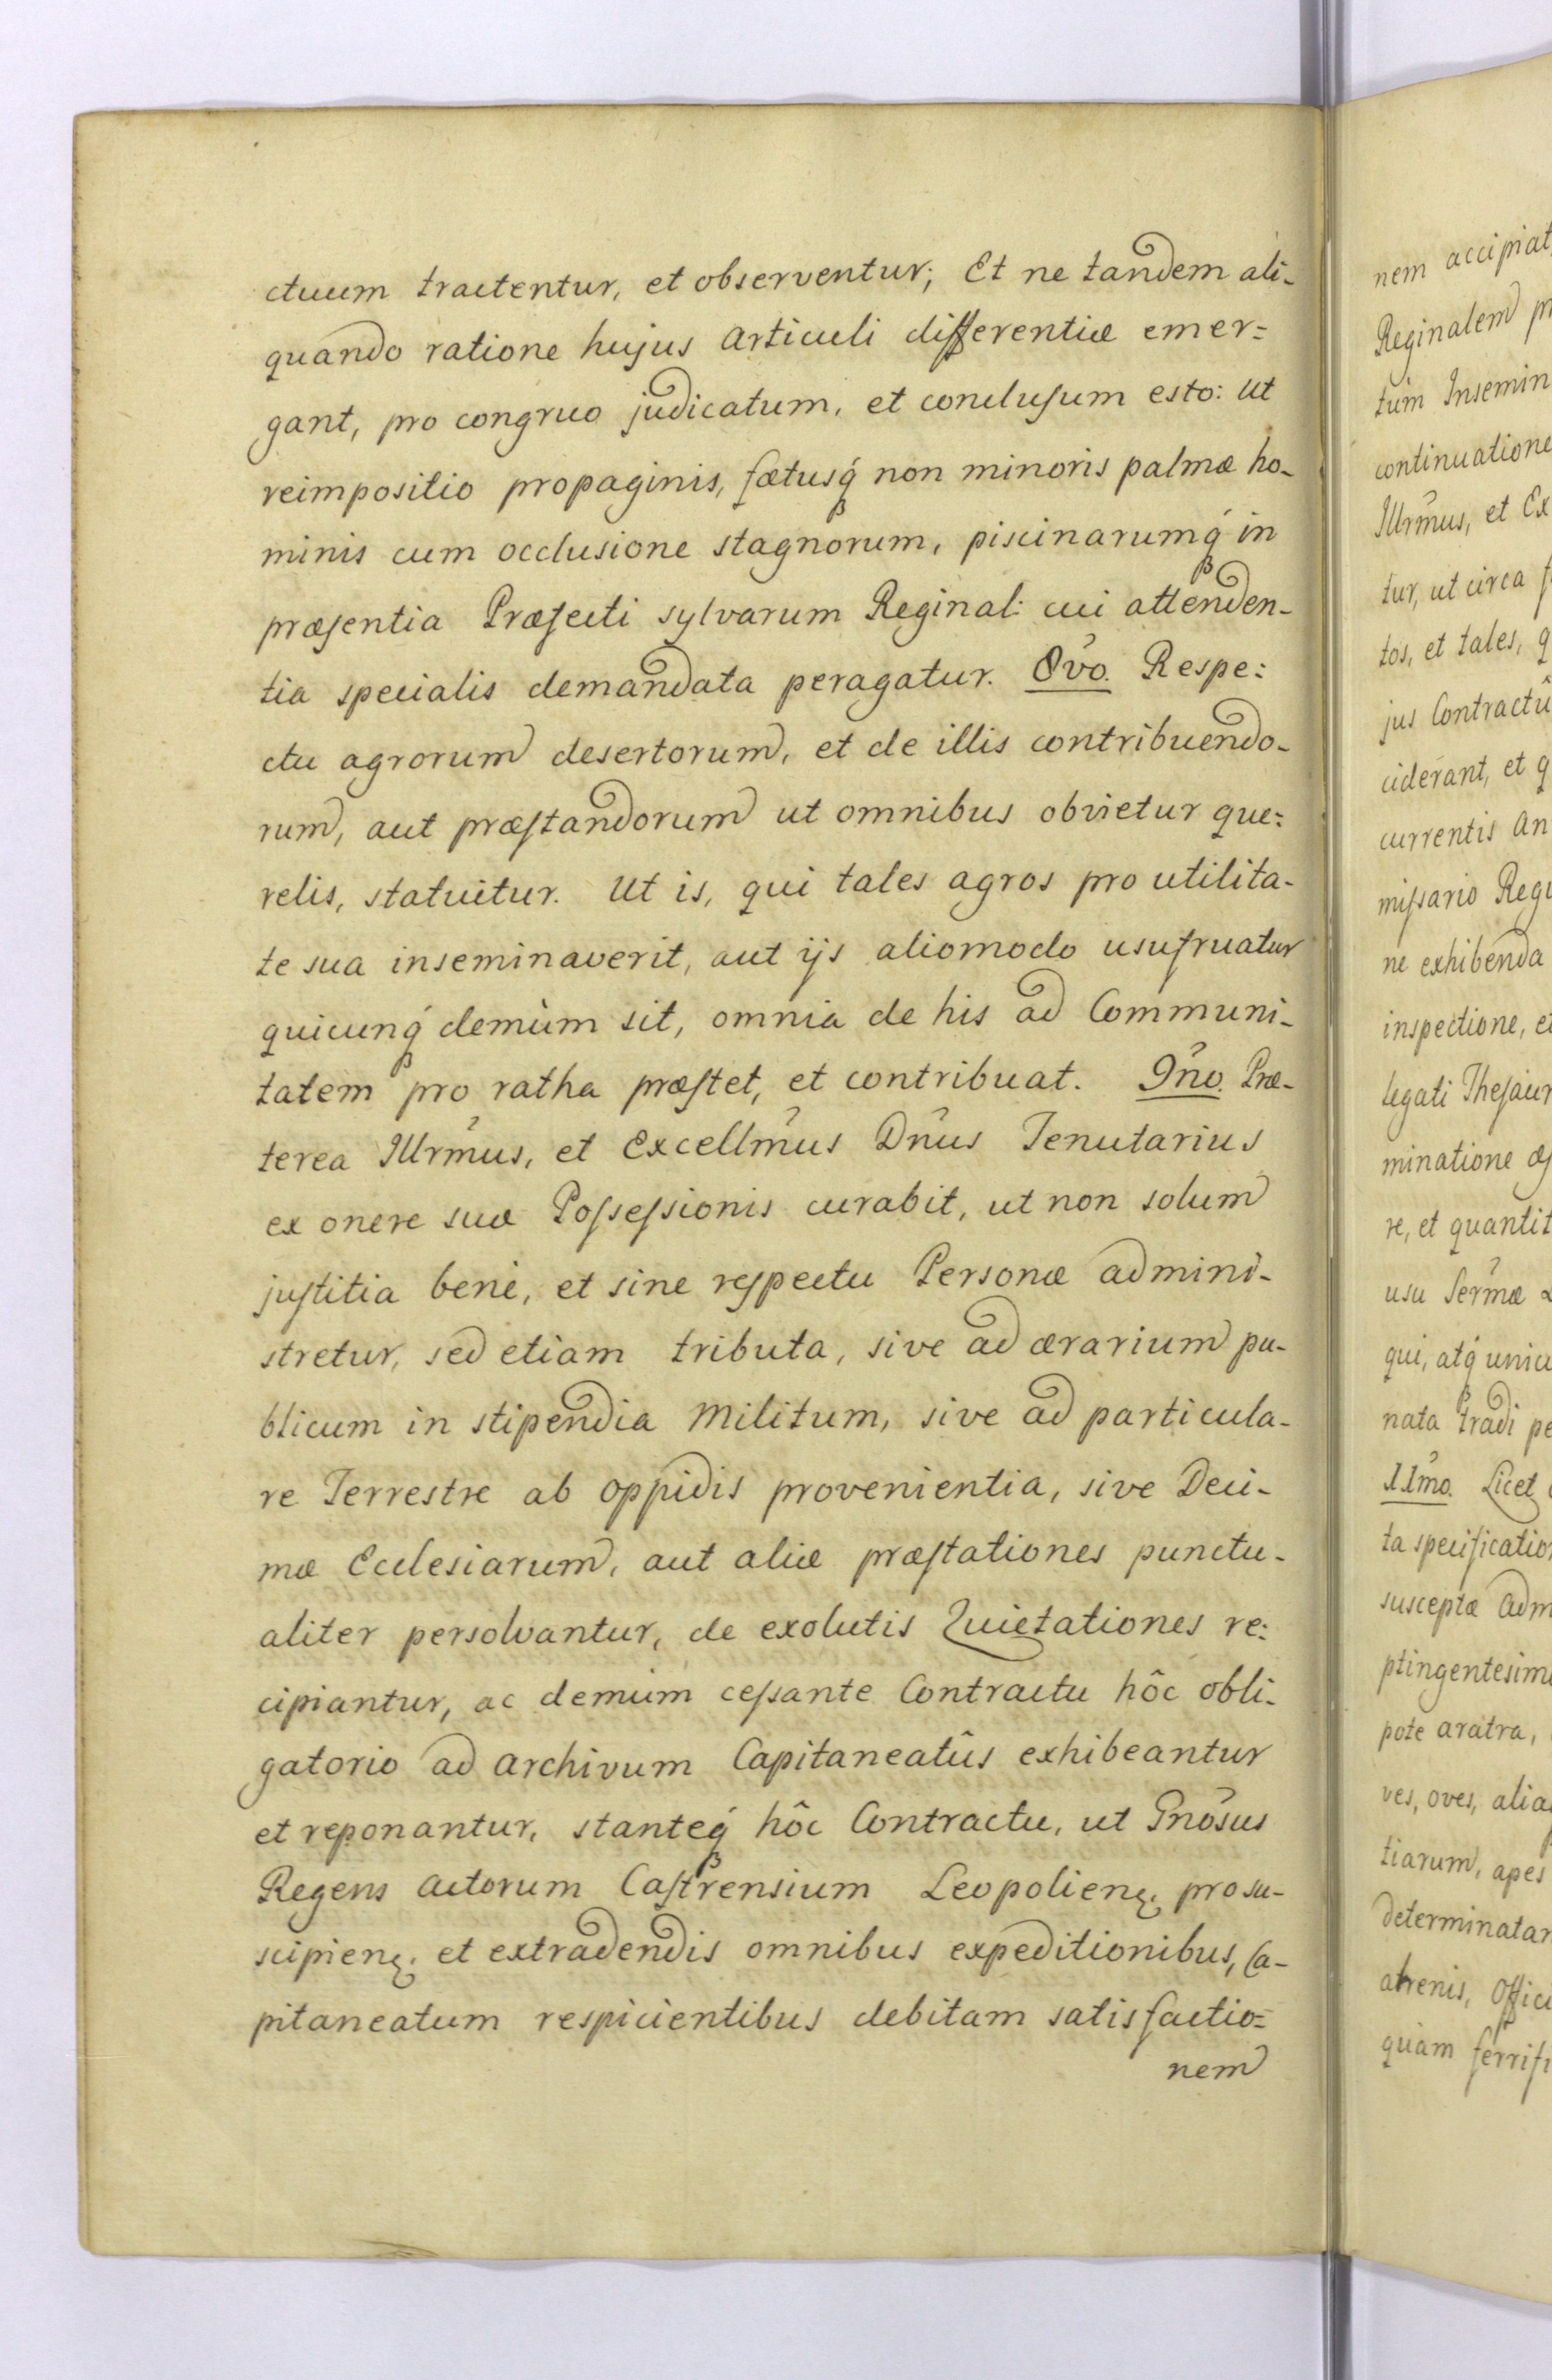 ctuum tractentur, et observentur; Et ne tandem ali-
quando ratione hujus articuli differentiæ emer=
gant, pro congruo judicatum, et conclusum esto: Ut
reimpositio propaginis, fætusq́ non minoris palmæ ho-
minis cum occlusione stagnorum, piscinarumq́ in
præsentia Præfecti sylvarum Reginal: cui attenden-
tia specialis demandata peragatur. 8vo. Respe=
ctu agrorum desertorum, et de illis contribuendo-
rum, aut præstandorum ut omnibus obvietur que=
relis, statuitur. Ut is, qui tales agros pro utilita-
te sua inseminaverit, aut ijs aliomodo usufruatur
quicunq́ demùm sit, omnia de his ad Communi-
tatem pro ratha præstet, et contribuat. 9no. Præ-
terea Illrmus, et Excellmus Dnus Tenutarius
ex onere suæ Possessionis curabit, ut non solum
justitia benè, et sine respectu Personæ admini-
stretur, sed etiam tributa, sive ad ærarium pu-
blicum in stipendia Militum, sive ad particula-
re Terrestre ab oppidis provenientia, sive Deci-
mæ Ecclesiarum, aut aliæ præstationes punctu-
aliter persolvantur, de exolutis Quietationes re=
cipiantur, ac demùm cessante Contractu hôc obli-
gatorio ad Archivum Capitaneatûs exhibeantur
et reponantur, stanteq́ hôc Contractu, ut Gnosus
Regens Actorum Castrensium Leopolien. pro su-
scipien. et extradendis omnibus expeditionibus, Ca-
pitaneatum respicientibus debitam satisfactio=
nem
nem accipiat
Reginalem
tùm Insemin
continuatione
Illrmus, et Ex
tur, ut circa
tos, et tales, q
jus Contractû
ciderant, et q
currentis An
missario Regi
ne exhibenda
inspectione, et
legati Thesaur
minatione
re, et quantit
usu Sermæ
qui, atq́ unic
nata tradi pe
11mo. Licet
ta specificatio
susceptæ Adm
ptingentesim
pote aratra,
ves, oves, alia
tiarum, apes
determinatar
Offici
quàm